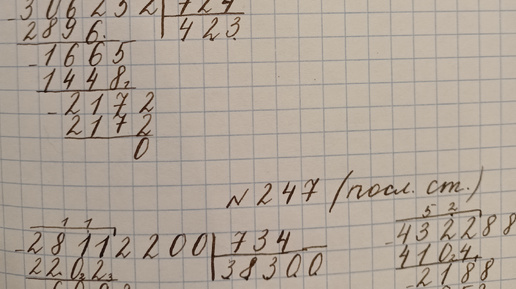 306252 | 724
2896 423
1665
1448
2172
2172
0
№ 247 (посл. ст.)
28112200 | 734
2202 38300
432288
4104
2188